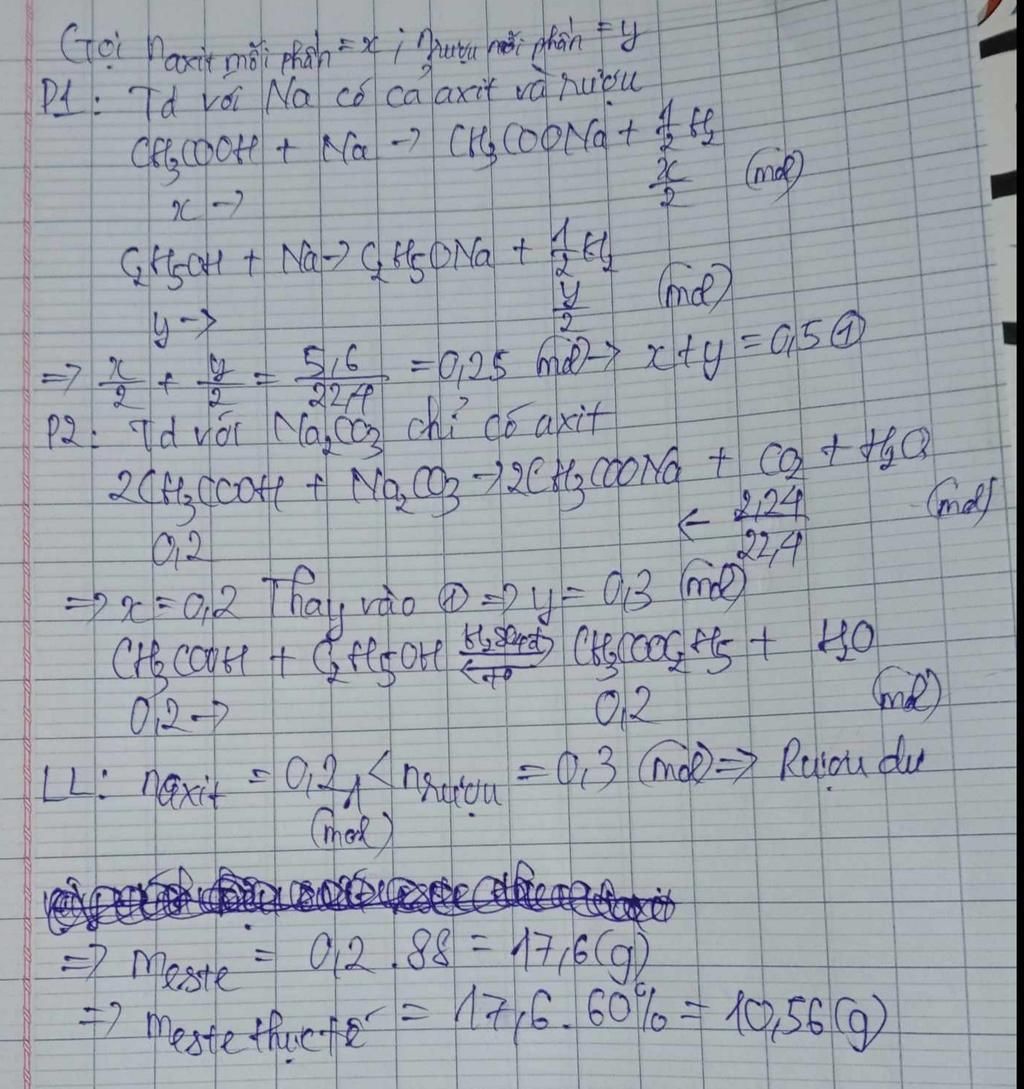 Gọi n axit mỗi phần = x ; n rượu mỗi phần = y
P1: Td với Na có cả axit và rượu
CH3COOH + Na -> CH3COONa + 1/2 H2
x -> x/2 (mol)
C2H5OH + Na -> C2H5ONa + 1/2 H2
y -> y/2 (mol)
=> x/2 + y/2 = 5,6/22,4 = 0,25 (mol) -> x + y = 0,5 ①
P2: Td với Na2CO3 chỉ có axit
2CH3COOH + Na2CO3 -> 2CH3COONa + CO2 + H2O
0,2 <- 2,24/22,4 (mol)
=> x = 0,2 Thay vào ① => y = 0,3 (mol)
CH3COOH + C2H5OH ⇌ (H2SO4đ, to) CH3COOC2H5 + H2O
0,2 -> 0,2 (mol)
LL: n axit = 0,2 (mol) < n rượu = 0,3 (mol) => Rượu dư
=> m este = 0,2 . 88 = 17,6 (g)
=> m este thực tế = 17,6 . 60% = 10,56 (g)